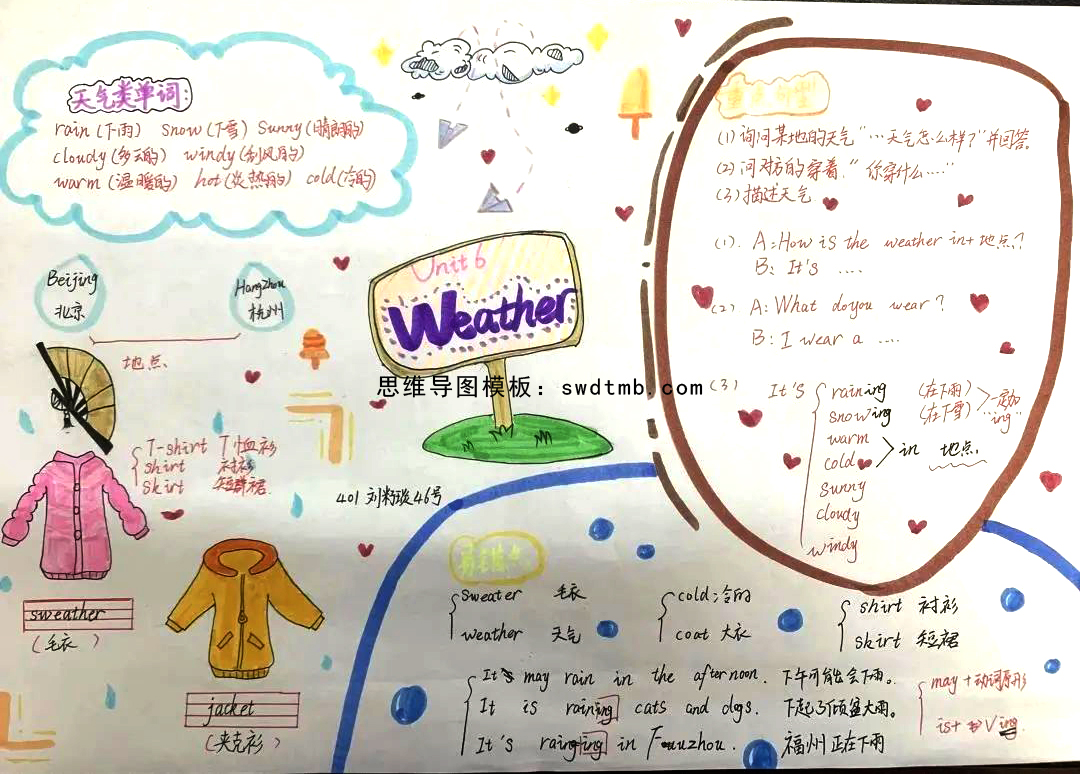 天气类单词:
rain(下雨) snow(下雪) sunny(晴朗的)
cloudy(多云的) windy(刮风的)
warm(温暖的) hot(炎热的) cold(冷的)
Beijing
北京
Hangzhou
杭州
地点
T-shirt T恤衫
shirt 衬衫
skirt 短裙
sweather
(毛衣)
jacket
(夹克衫)
Unit 6
Weather
思维导图模板：swdtmb.com
401 刘 46号
重点句型
(1)询问某地的天气“…天气怎么样了”并回答。
(2)问对方的穿着，“你穿什么....”
(3)描述天气
(1). A:How is the weather in+地点?
B: It's ....
(2) A:What doyou wear?
B: I wear a ....
(3) It's raining (在下雨)
snowing (在下雪)
一定加
"ing"
warm
cold
in 地点
sunny
cloudy
windy
易错点
sweater 毛衣
weather 天气
cold:冷的
coat 大衣
shirt 衬衫
skirt 短裙
It may rain in the afternoon. 下午可能会下雨。
It is raining cats and dogs. 下起了倾盆大雨。
It's raing ing in Fuuzhou. 福州正在下雨
may+动词原形
is+ V ing